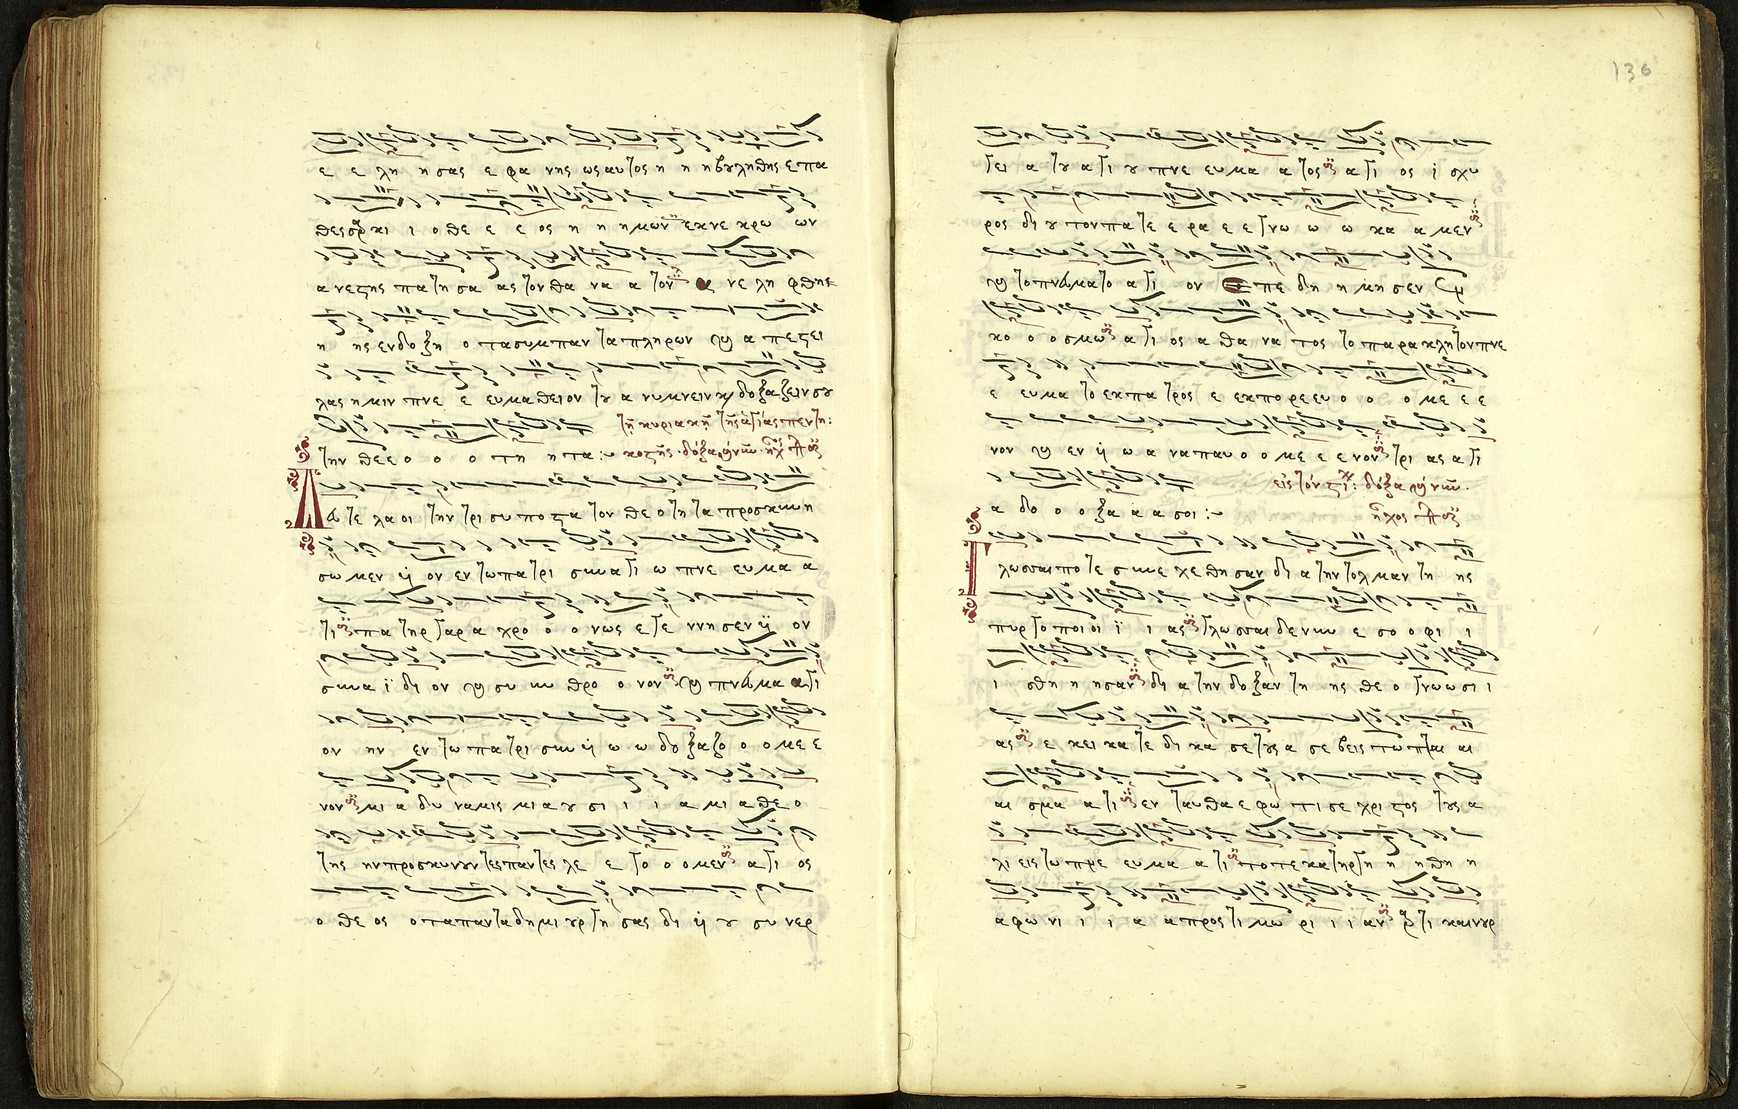 ε ε λη η σας ε φα νης ως αυτος η η η βουληθης ε πα
θες σαρκι ι ο θε ε ε ος η η ημων εκ νε κρω ων
ανεστης πατη σα ας τον θα να α τον α νε λη φθης
η ης εν δο ξη ο τα συμπαντα πληρων και α πεστει
λας ημιν πνε ε ευμα θειον του α νυμνειν και δοξαζειν σου
την θε ε ο ο ο τη η τα :
τῇ κυριακῇ τῆς ἁγίας πεντη:
κοστῆς. δόξα καὶ νῦν ἦχος πλ δ
Δευτε λαοι την τρισυποστα τον θεοτητα προσκυνη
σωμεν υι ον εν τω πατρι συν αγι ω πνε ευμα α
τι πατηρ γαρ α χρο ο ο νως ε γε ννησεν υι ον
συν α ϊ δι ον και συν νυ θρο ο νον και πνευμα αγι
ον ην εν τω πατρι συν υι ω ω δοξαζο ο ο με ε
νον μι α δυ ναμις μι α ου σι ι ι α μι α θε ο
της ην προσκυνουντες παντες λε ε γο ο ο μεν α γι ος
ο θε ος ο τα παντα δημιουργη σας δι υι ου συ νερ
136
γει α του αγι ου πνε ευμα α τος α γι ος ϊ σχυ
ρος δι ου τον πατε ε ρα ε ε γνω ω ω κα α μεν
και το πνευμα το α γι ον ε πε δη η μη σεν εν
κο ο ο σμω α γι ος α θα να τος το παρακλητον πνε
ε ευμα το εκ πα τρος ε εκπορε ευ ο ο ο με ε ε
νον και εν υι ω α ναπαυ ο ο με ε ε νον τρι ας α γι
α δο ο ο ξα α α σοι :
εἰς τὸν στίχον: δόξα καὶ νῦν.
ἦχος πλ δ
Γλωσσαι ποτε συνε χε θησαν δι α την τολμαν τη ης
πυργοποιοι ϊ ι ας γλωσσαι δε νυν ε σο ο φι ι
ι σθη η ησαν δι α την δοξαν τη ης θε ο γνω ω σι ι
ας ε κει κατε δι κα σε τους α σε βεις τω πται αι
αι σμα α τι εν ταυθα ε φω τι σε χριστος τους α
λι εις τω πνε ευμα α τι τοτε κατηργη η ηθη η
α φω νι ι ι α α προς τι μω ρι ι ι αν αρτι καινουρ